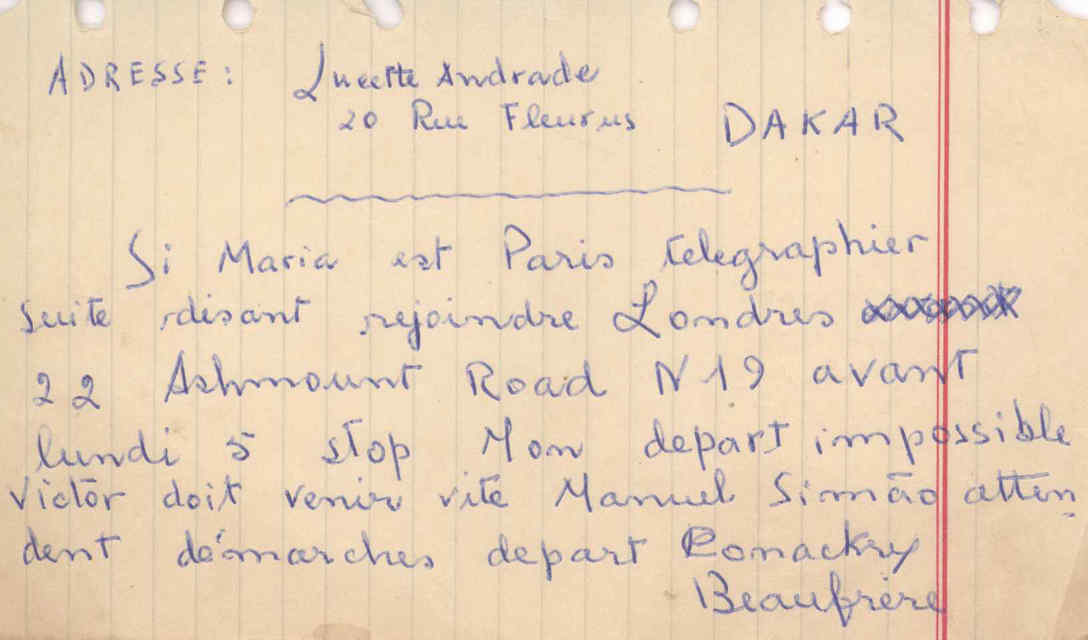 ADRESSE: Lucette Andrade
20 Rue Fleurus DAKAR
Si Maria est Paris telegraphier
suite disant rejoindre Londres
22 Ashmount Road N19 avant
lundi 5 stop Mon depart impossible
Victor doit venir vite Manuel Simão atten
dent démarches depart Conackry
Beaufrère